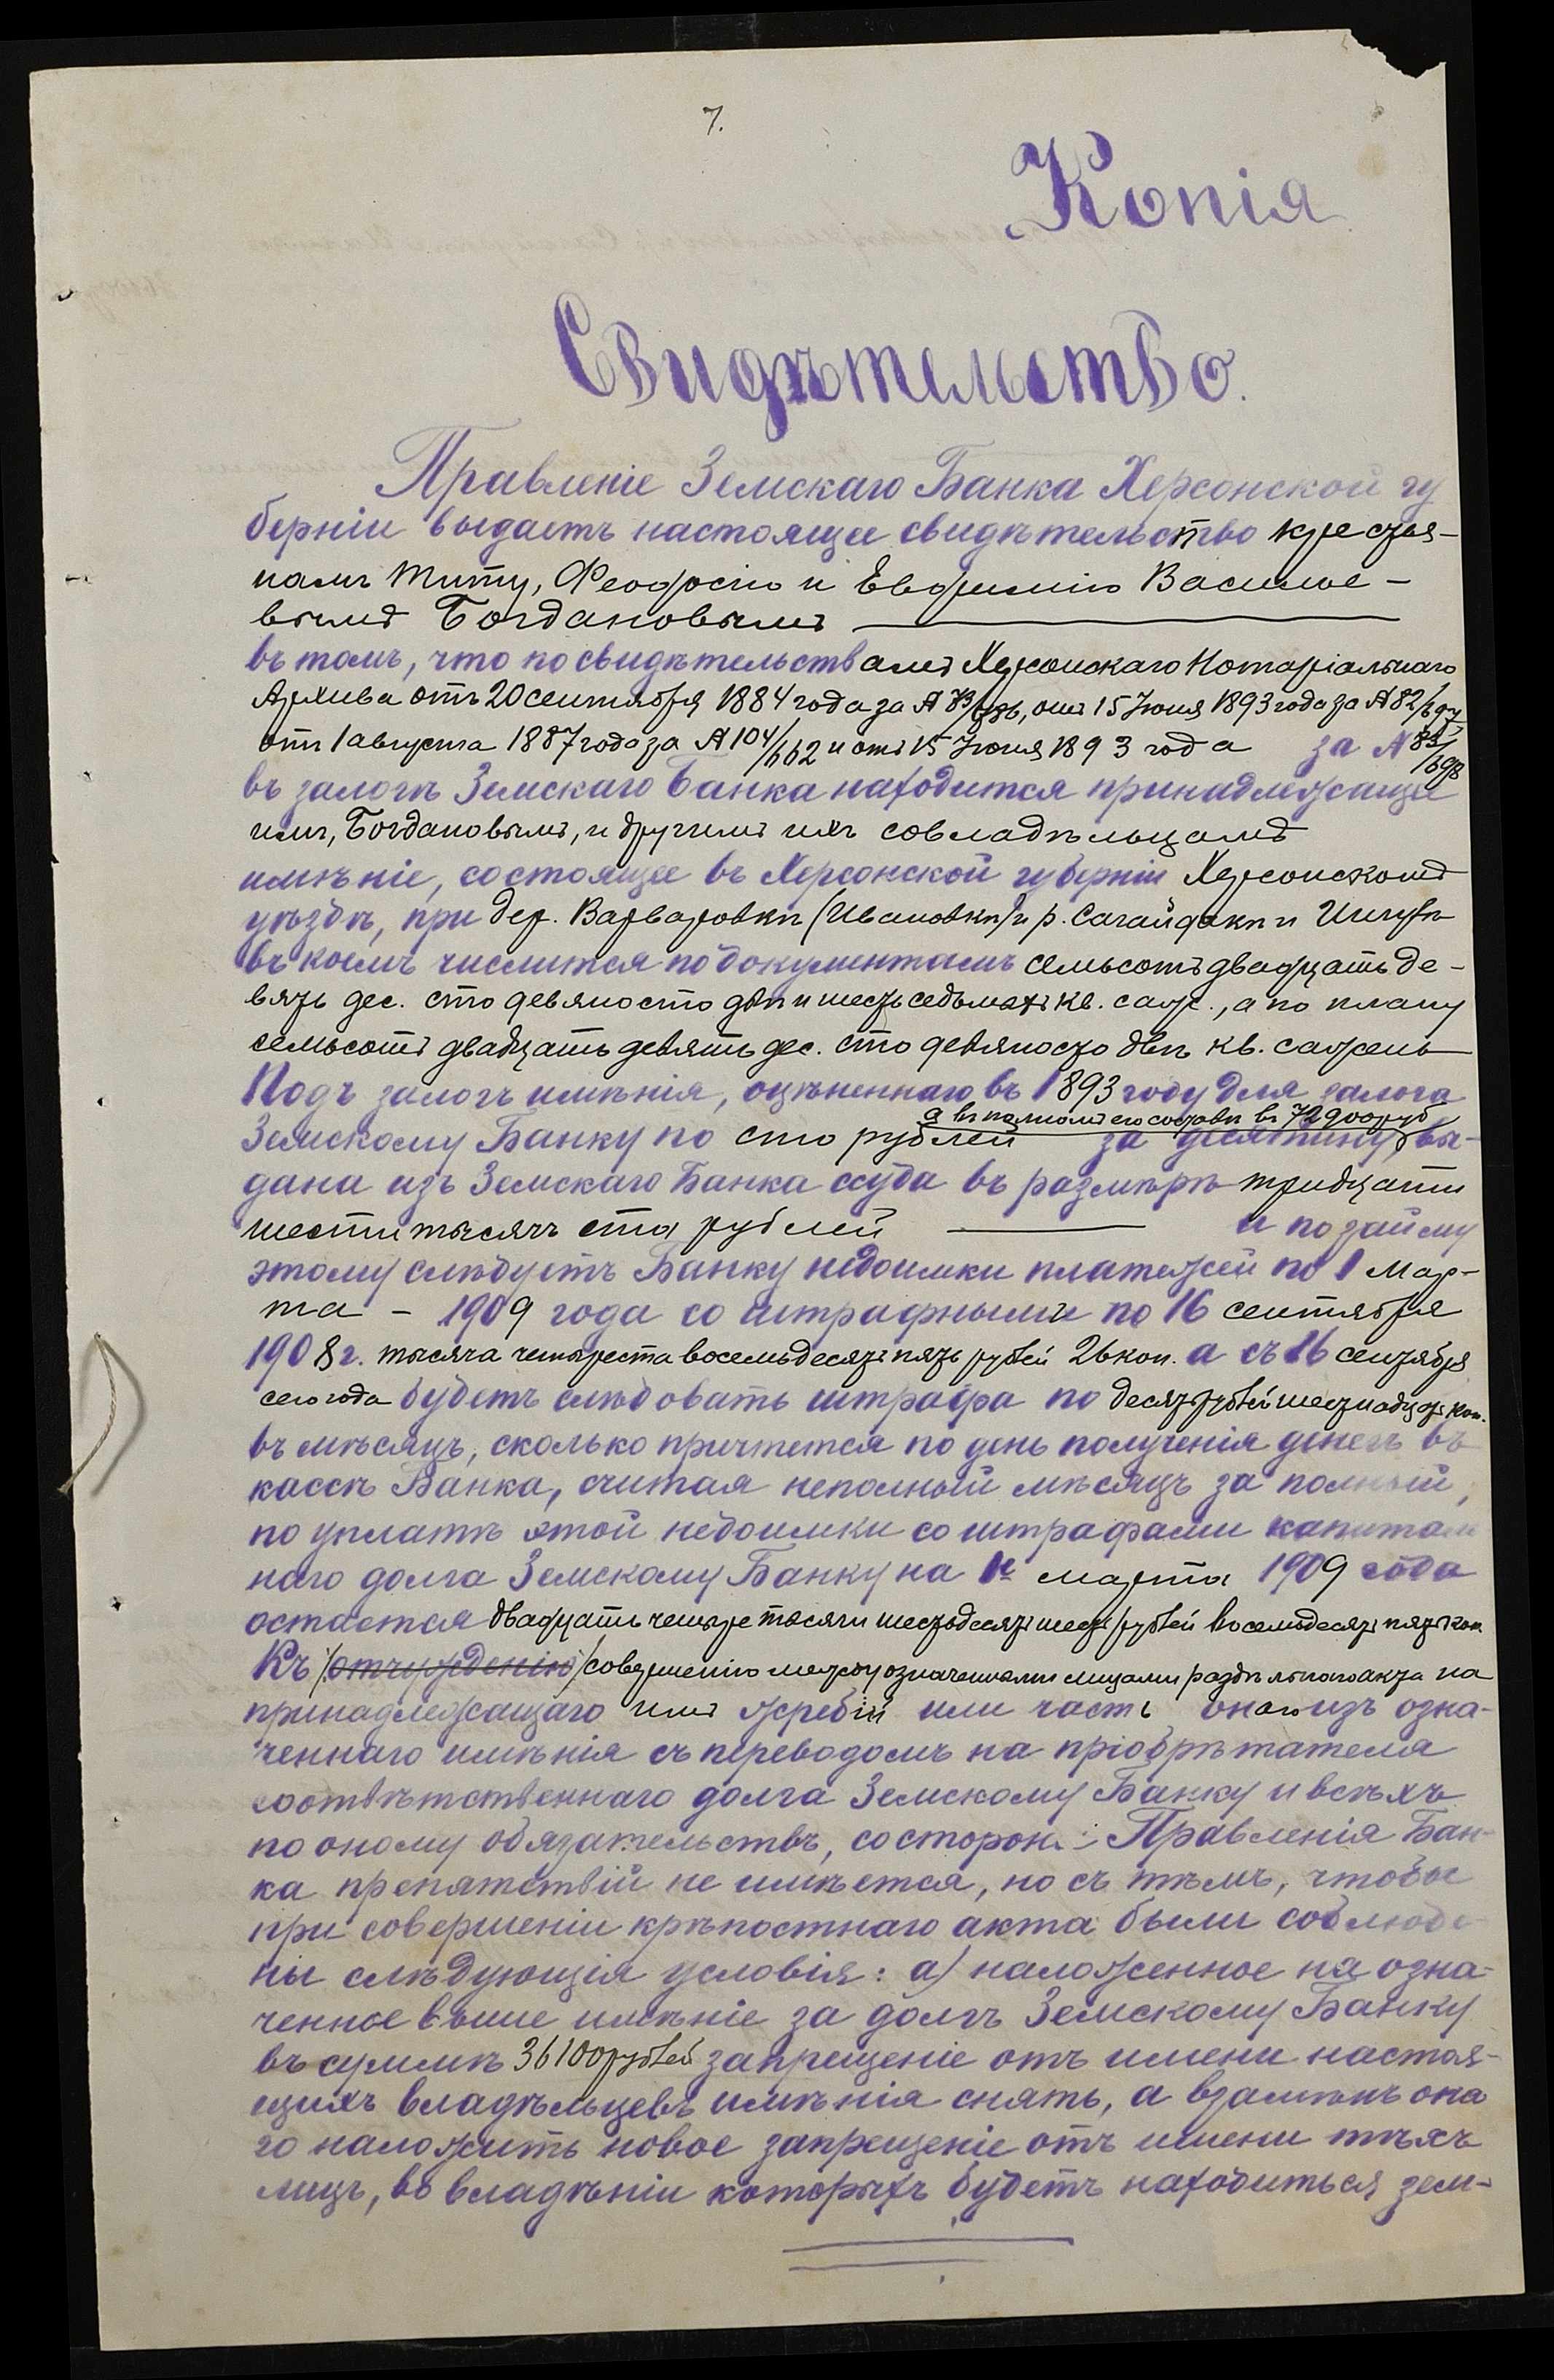 7.
Копія
Свидѣтельство.
Правленіе Земскаго Банка Херсонской гу
берніи выдаетъ настоящее свидѣтельство крестья-
намъ Титу, Феодосію и Евфимію Василье-
вымъ Богдановымъ
въ томъ, что по свидѣтельствамъ Херсонскаго Нотаріальнаго
Архива отъ 20 сентября 1884 года за № отъ 15 Іюня 1893 года за № 82/697
отъ 1 августа 1887 года за № 104/662 и отъ 15 Іюня 1893 года за № 83/698
въ залогѣ Земскаго Банка находится принадлежащее
имъ, Богдановымъ, и другимъ ихъ совладѣльцамъ
имѣніе, состоящее въ Херсонской губерніи Херсонскомъ
уѣздѣ, при дер. Варваровкѣ (Ивановкѣ) и р. Сагайдакѣ и Ингулѣ
въ коемъ числится по документамъ семьсотъ двадцать де-
вять дес. сто девяносто двѣ и шесть седьмыхъ кв. саж., а по плану
семьсотъ двадцать девять дес. сто девяносто двѣ кв. сажень
Подъ залогъ имѣнія, оцѣненнаго въ 1893 году для залога
а въ полномъ его составѣ въ 72900 руб
Земскому Банку по сто рублей за десятину, вы-
дана изъ Земскаго Банка ссуда въ размѣрѣ тридцати
шести тысячъ ста рублей и по займу
этому слѣдуетъ Банку недоимки платежей по 1 Мар-
та - 1909 года со штрафными по 16 сентября
1908 г. тысяча четыреста восемьдесятъ пять рублей 26 коп. а съ 16 сентября
сего года будетъ слѣдовать штрафа по десять рублей шестнадцать коп.
въ мѣсяцъ, сколько причтется по день полученія денегъ въ
кассѣ Банка, считая неполный мѣсяцъ за полный,
по уплатѣ этой недоимки со штрафами капиталь
наго долга Земскому Банку на 1е марта 1909 года
остается двадцать четыре тысячи шестьдесятъ шесть рублей восемьдесятъ пять коп.
Къ (отчужденію) совершенію между означенными лицами раздѣльнаго акта на
принадлежащаго имъ жребій или часть онаго изъ озна-
ченнаго имѣнія съ переводомъ на пріобрѣтателя
соотвѣтственнаго долга Земскому Банку и всѣхъ
по оному обязательствъ, со стороны Правленія Бан-
ка препятствій не имѣется, но съ тѣмъ, чтобы
при совершеніи крѣпостнаго акта были соблюде-
ны слѣдующія условія: а) наложенное на озна-
ченное выше имѣніе за долгъ Земскому Банку
въ суммѣ 36100 рублей запрещеніе отъ имени настоя-
щихъ владѣльцевъ имѣнія снять, а взамѣнъ она
го наложить новое запрещеніе отъ имени тѣхъ
лицъ, во владѣніи которыхъ будетъ находиться зем-